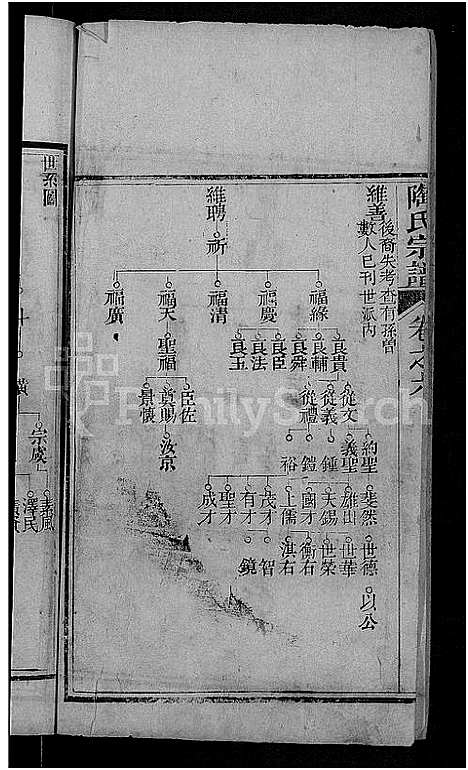 陶氏宗譜 卷之六
維善 後裔失考查有孫曾
數人已刊世派內
維聘 祈
福緣 福慶 福清 福天 福廣
良貴 良輔 良舜 良臣 良法 良玉 聖福
從文 從義 從禮 臣佐 真賜 景懷
約聖 義聖 鍾 鎧 裕 汝京
斐然 雄山 天錫 國才 上儒 茂才 有才 聖才 成才
世德 世華 世榮 衡右 淇右 智 鏡
以公
世系圖
宗虞
素風 澤民
FamilySearch